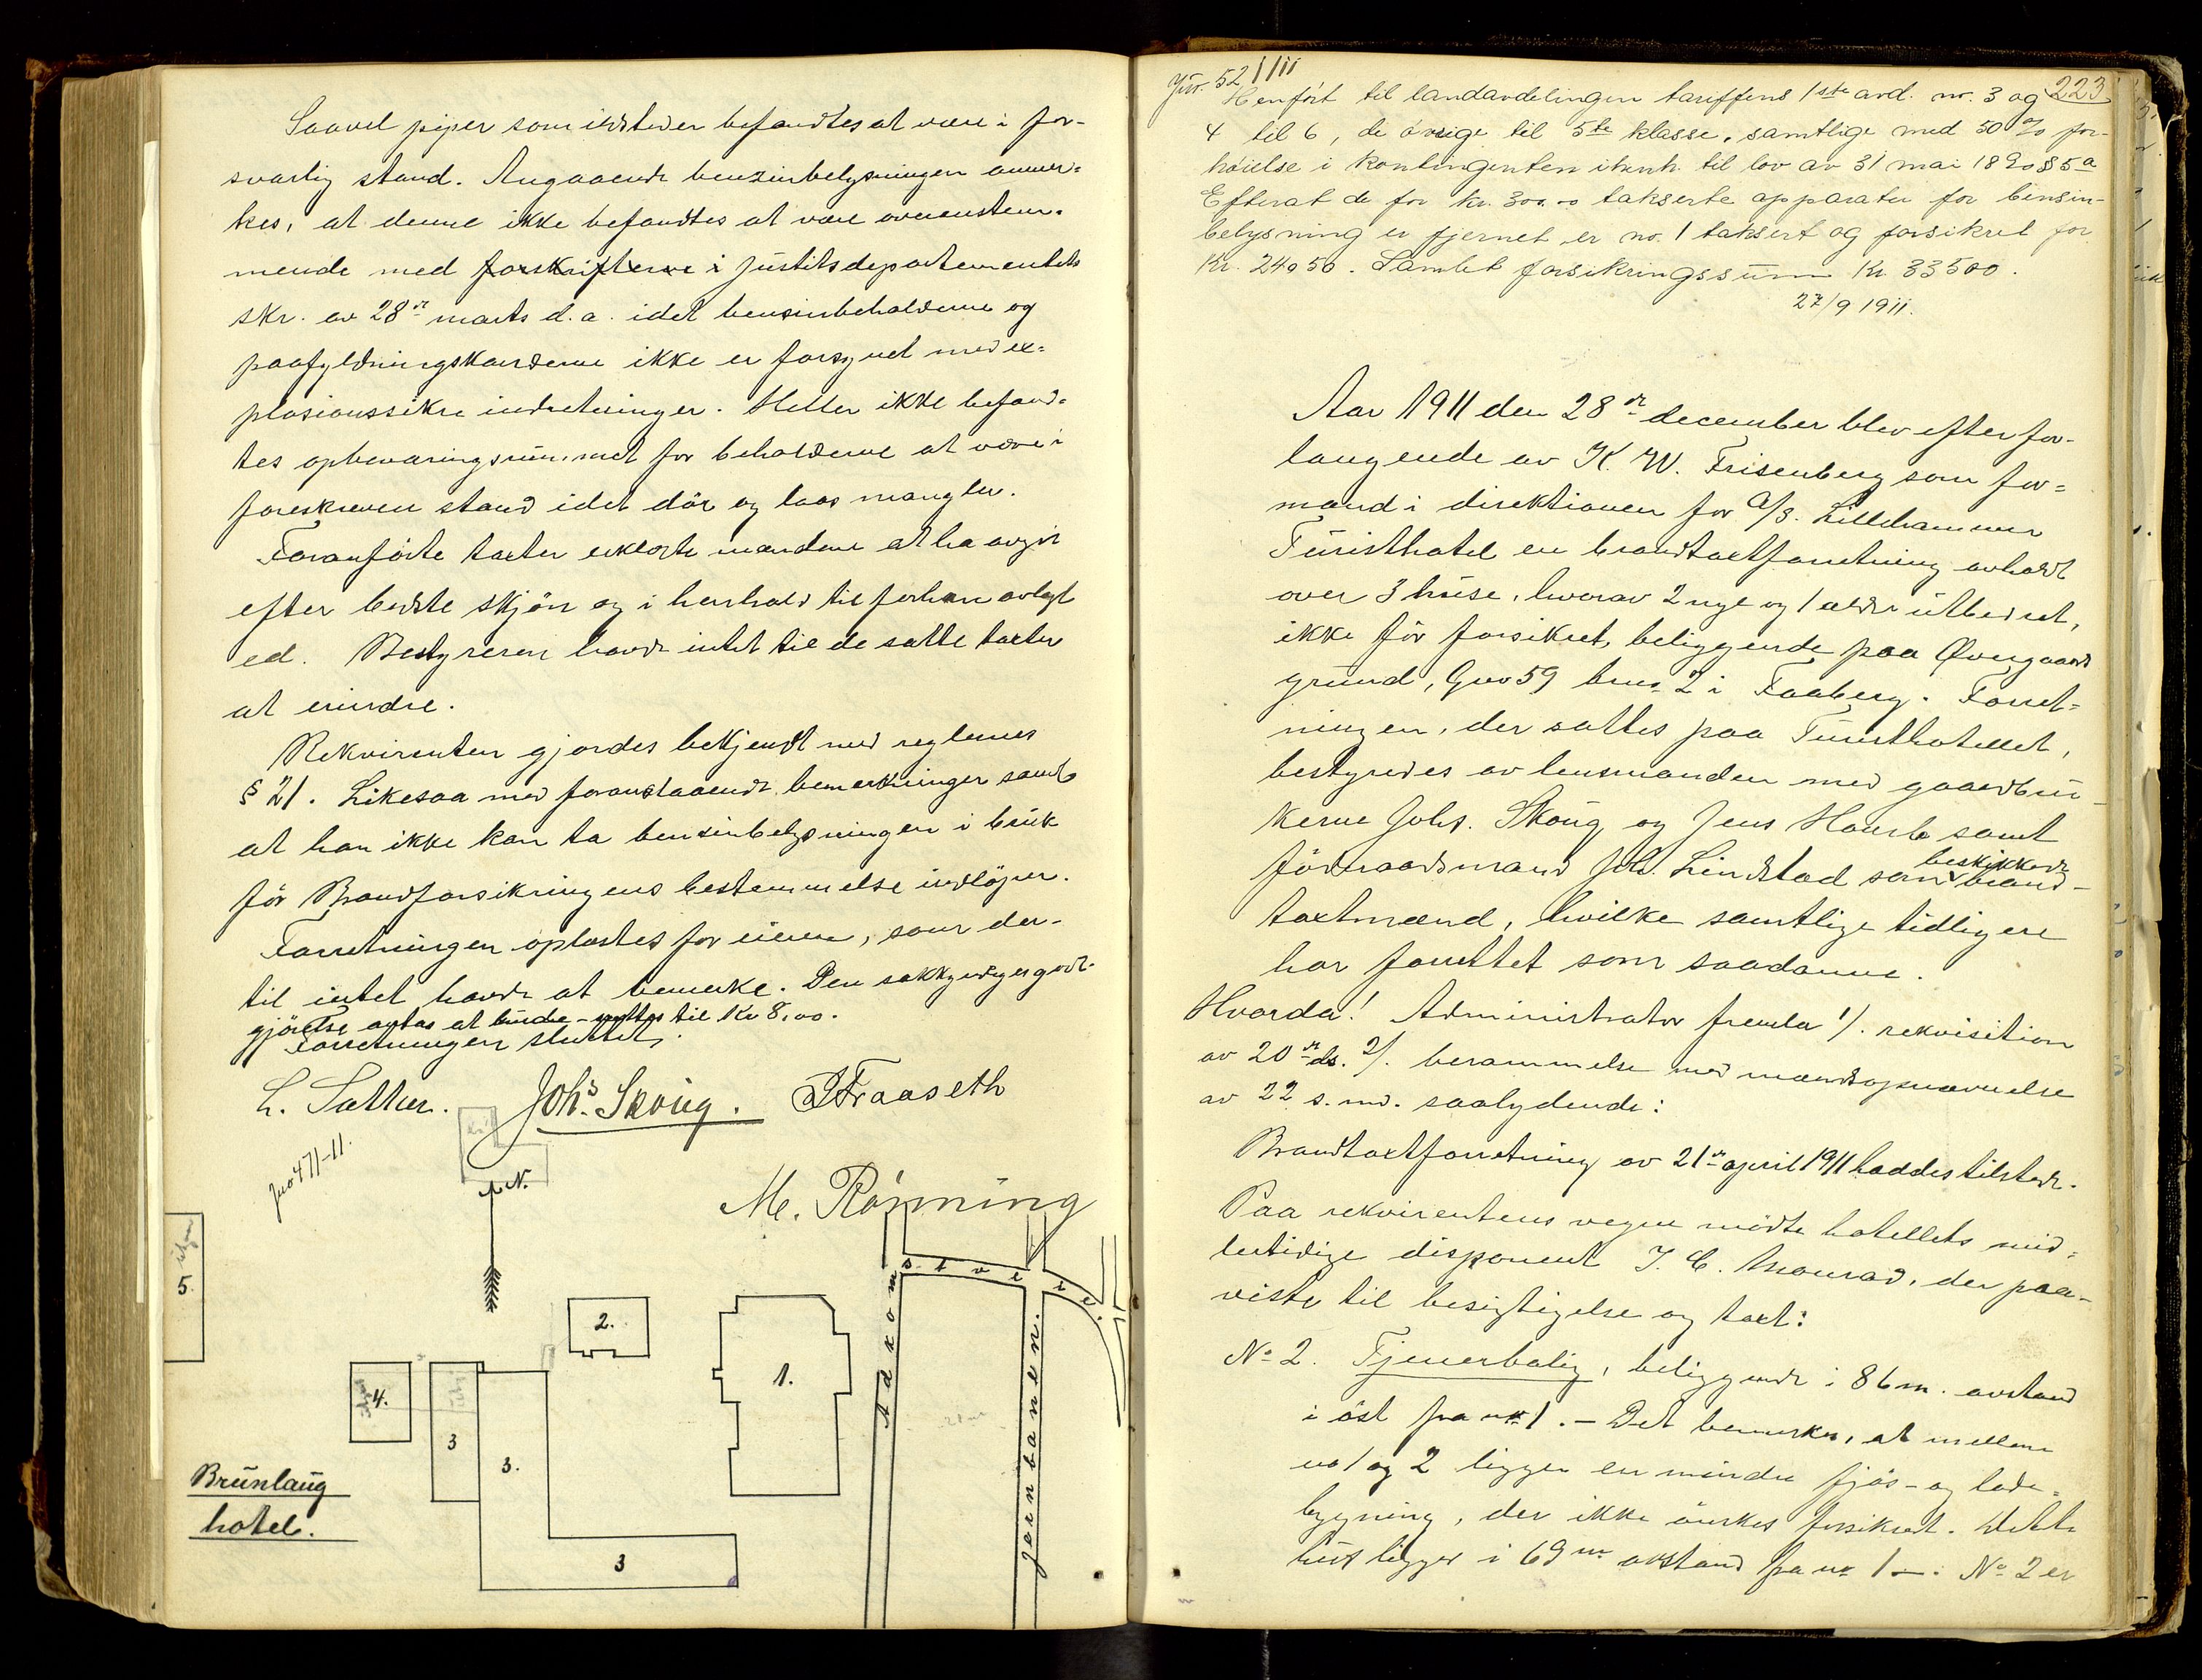 Saavel piper som ildsteder befandtes at være i for-
svarlig stand. Angaaende benzinbelysningen anmer-
kes, at denne ikke befandtes at være overenstem-
mende med forskrifterne i justitsdepartementets
skr. av 28de marts d.a. idet bensinbeholderne og
paafyldningskanderne ikke er forsynet med ex-
plosionssikre indretninger. Heller ikke befand-
tes opbevaringsrummet for beholderne at være i
foreskreven stand idet dör og laas mangler.
Foranförte taxter erklærte mændene at ha avgit
efter bedste skjön og i henhold til forhen avlagt
ed. Bestyreren havde intet til de satte taxter
at erindre.
Rekvirenten gjordes bekjendt med reglernes
§ 21. Likesaa med foranstaaende bemerkninger samt
at han ikke kan ta bensinbelysningen i bruk
för Brandforsikringens bestemmelse indlöper.
Forretningen oplæstes for eieren, som der-
til intet havde at bemerke. Den sakkyndiges godt-
gjörelse antas at burde sættes til Kr 8,00.
Forretningen sluttet.
L. Sæther. Johs. Skoug. P Fraaseth
M. Rönning
Jno 471-11.
N.
5.
2.
1.
4.
3
3.
3
Adkomstveie.
jernbanen.
Brunlaug
hotel.
Jnr. 521/11
223
Henfört til landavdelingen tariffens 1ste avd. no. 3 og
4 til 6, de övrige til 5te klasse, samtlige med 50% for-
höielse i kontingenten ihenh. til lov av 31 mai 1890 § 5a
Efterat de for kr. 300.00 takserte apparater for bensin-
belysning er fjernet er no. 1 taksert og forsikret for
Kr. 24050. Samlet forsikringssum Kr 33500.
27/9 1911.
Aar 1911 den 28de december blev efter for-
langende av K. W. Frisenberg som for-
mand i direktionen for A/S. Lillehammer
Turisthotel en brandtaxtforretning avholdt
over 3 huse, hvorav 2 nye og 1 ældre utbedret,
ikke för forsikret, beliggende paa Övergaard
grund, Gno 59 brno 2 i Faaberg. Forret-
ningen, der sattes paa Turisthotellet,
bestyredes av lensmanden med gaardbru-
kerne Johs. Skoug og Jens Hov samt
fördraadsmand Joh. Lindstad som beskikkede brand-
taxtmænd, hvilke samtlige tidligere
har forrettet som saadanne.
Hvorda! Administrator fremla 1/. rekvisition
av 20de ds. 2/. berammelse med mandsopnævnelse
av 22 s.md. saalydende:
Brandtaxtforretning av 21de april 1911 haddes tilstede.
Paa rekvirentens vegne mödte hotellets mid-
lertidige disponent J. C. Monrad, der paa-
viste til besigtigelse og taxt:
No 2. Tjenerbolig, beliggende i 86 m. avstand
i öst fra no 1. – Det bemerkes, at mellem
no 1 og 2 ligger en mindre fjös- og lade-
bygning, der ikke önskes forsikret. Dette
hus ligger i 69 m avstand fra no 1 –. No 2 er